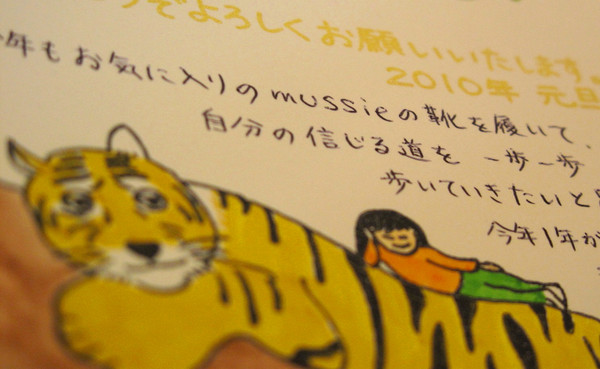 ぞよろしくお願いいたします。
2010年 元旦
年もお気に入りのmussieの靴を履いて、
自分の信じる道を 一歩一歩
歩いていきたいと
今年1年が